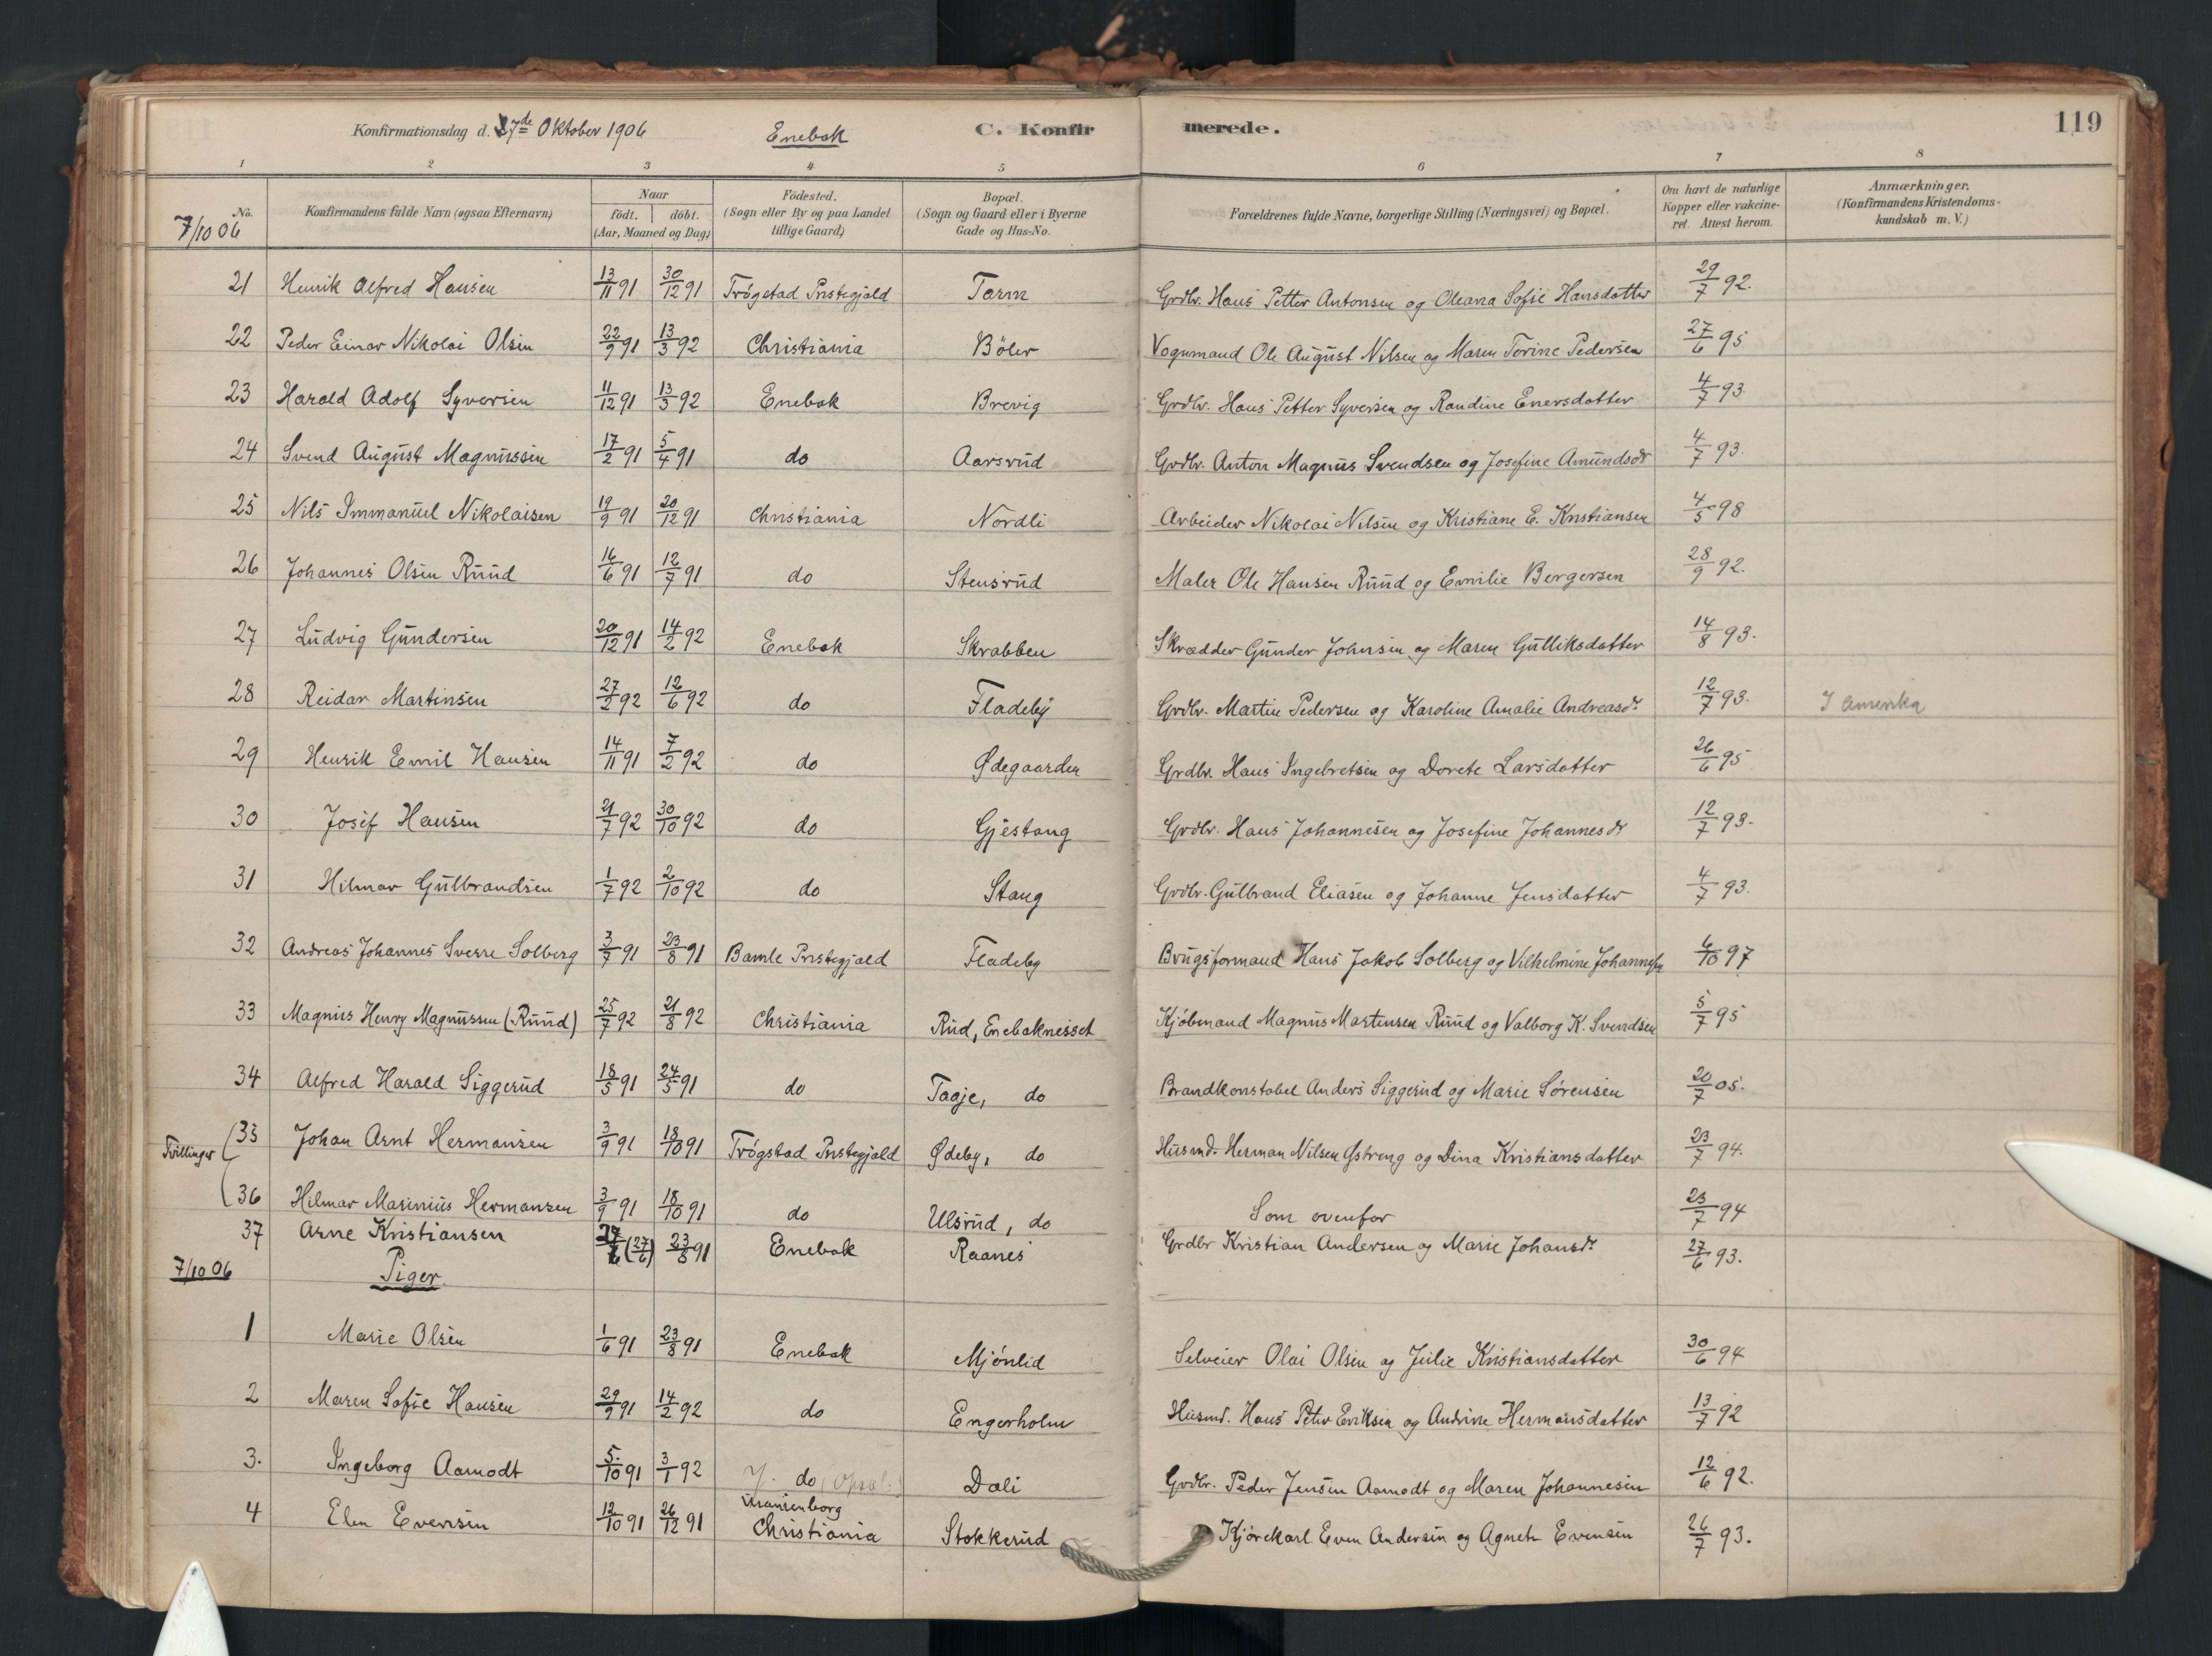 Konfirmationsdag d. 7de Oktober 1906 Enebak C. Konfirmerede. 119
1 2 3 4 5 6 7 8
No. Konfirmandens fulde Navn (ogsaa Efternavn) Naar født. døbt. (Aar, Maaned og Dag) Fødested. (Sogn eller By og paa Landet tillige Gaard) Bopæl. (Sogn og Gaard eller i Byerne Gade og Hus-No. Forældrenes fulde Navne, borgerlige Stilling (Næringsvei) og Bopæl. Om havt de naturlige Kopper eller vakcineret. Attest herom. Anmærkninger. (Konfirmandens Kristendomskundskab m. V.)
7/10 06
21 Henrik Alfred Hansen 13/11 91 30/12 91 Trøgstad Præstegjæld Tarm Grdbr. Hans Petter Antonsen og Oleana Sofie Hansdatter 29/7 92.
22 Peder Einar Nikolai Olsen 22/9 91 13/3 92 Christiania Bøler Vognmand Ole August Nilsen og Maren Torine Pedersen 27/6 95
23 Harald Adolf Syversen 11/12 91 13/3 92 Enebak Brevig Grdbr. Hans Petter Syversen og Randine Enersdatter 4/7 93
24 Svend August Magnussen 17/2 91 5/4 91 do Aarsrud Grdbr. Anton Magnus Svendsen og Josefine Amundsdr 4/7 93.
25 Nils Immanuel Nikolaisen 19/9 91 20/12 91 Christiania Nordli Arbeider Nikolai Nilsen og Kristiane E. Kristiansen 4/5 98
26 Johannes Olsen Ruud 16/6 91 12/7 91 do Stensrud Maler Ole Hansen Ruud og Emilie Bergersen 28/9 92.
27 Ludvig Gundersen 20/12 91 14/2 92 Enebak Skrabben Skrædder Gunder Johnsen og Maren Gulliksdatter 14/8 93.
28 Reidar Martinsen 27/2 92 12/6 92 do Fladeby Grdbr. Martin Pedersen og Karoline Amalie Andreasdr. 12/7 93. I Amerika
29 Henrik Emil Hansen 14/11 91 7/2 92 do Ødegaarden Grdbr. Hans Ingebretsen og Dorete Larsdatter 26/6 95
30 Josef Hansen 21/7 92 30/10 92 do Gjestang Grdbr. Hans Johannesen og Josefine Johannesdr 12/7 93.
31 Hilmar Gulbrandsen 1/7 92 2/10 92 do Stang Grdbr. Gulbrand Eliasen og Johanne Jensdatter 4/7 93.
32 Andreas Johannes Sverre Solberg 3/7 91 23/8 91 Bamle Præstegjæld Fladeby Brugsformand Hans Jakob Solberg og Vilhelmine Johannesen 6/10 97
33 Magnus Henry Magnussen (Ruud) 25/7 92 21/8 92 Christiania Rud, Enebaknesset Kjøbmand Magnus Martinsen Ruud og Valborg K. Svendsen 5/7 95
34 Alfred Harald Siggerud 18/5 91 24/5 91 do Tagje, do Brandkonstabel Anders Siggerud og Marie Sørensen 20/7 05.
Tvillinger
35 Johan Arnt Hermansen 3/9 91 18/10 91 Trøgstad Præstegjæld Ødeby, do Husmd. Herman Nilsen Østreng og Dina Kristiansdatter 23/7 94.
36 Hilmar Marinius Hermansen 3/9 91 18/10 91 do Ulsrud, do Som ovenfor 23/7 94
37 Arne Kristiansen 27/6 (27/6) 23/8 91 Enebak Raanes Grdbr Kristian Andersen og Marie Johansdr. 27/6 93.
7/10 06 Piger.
1 Marie Olsen 1/6 91 23/8 91 Enebak Mjönlid Selveier Olai Olsen og Julie Kristiansdatter 30/6 94
2 Maren Sofie Hansen 29/9 91 14/2 92 do Engerholm Husmd. Hans Peter Eriksen og Andrine Hermansdatter 13/7 92
3. Ingeborg Aamodt 5/10 91 3/1 92 do Dali Grdbr. Peder Jensen Aamodt og Maren Johannesen 12/6 92.
4 Elen Evensen 12/10 91 26/12 91 Uranienborg Christiania Stokkerud Kjørekarl Even Andersen og Agnete Evensen 26/7 93.